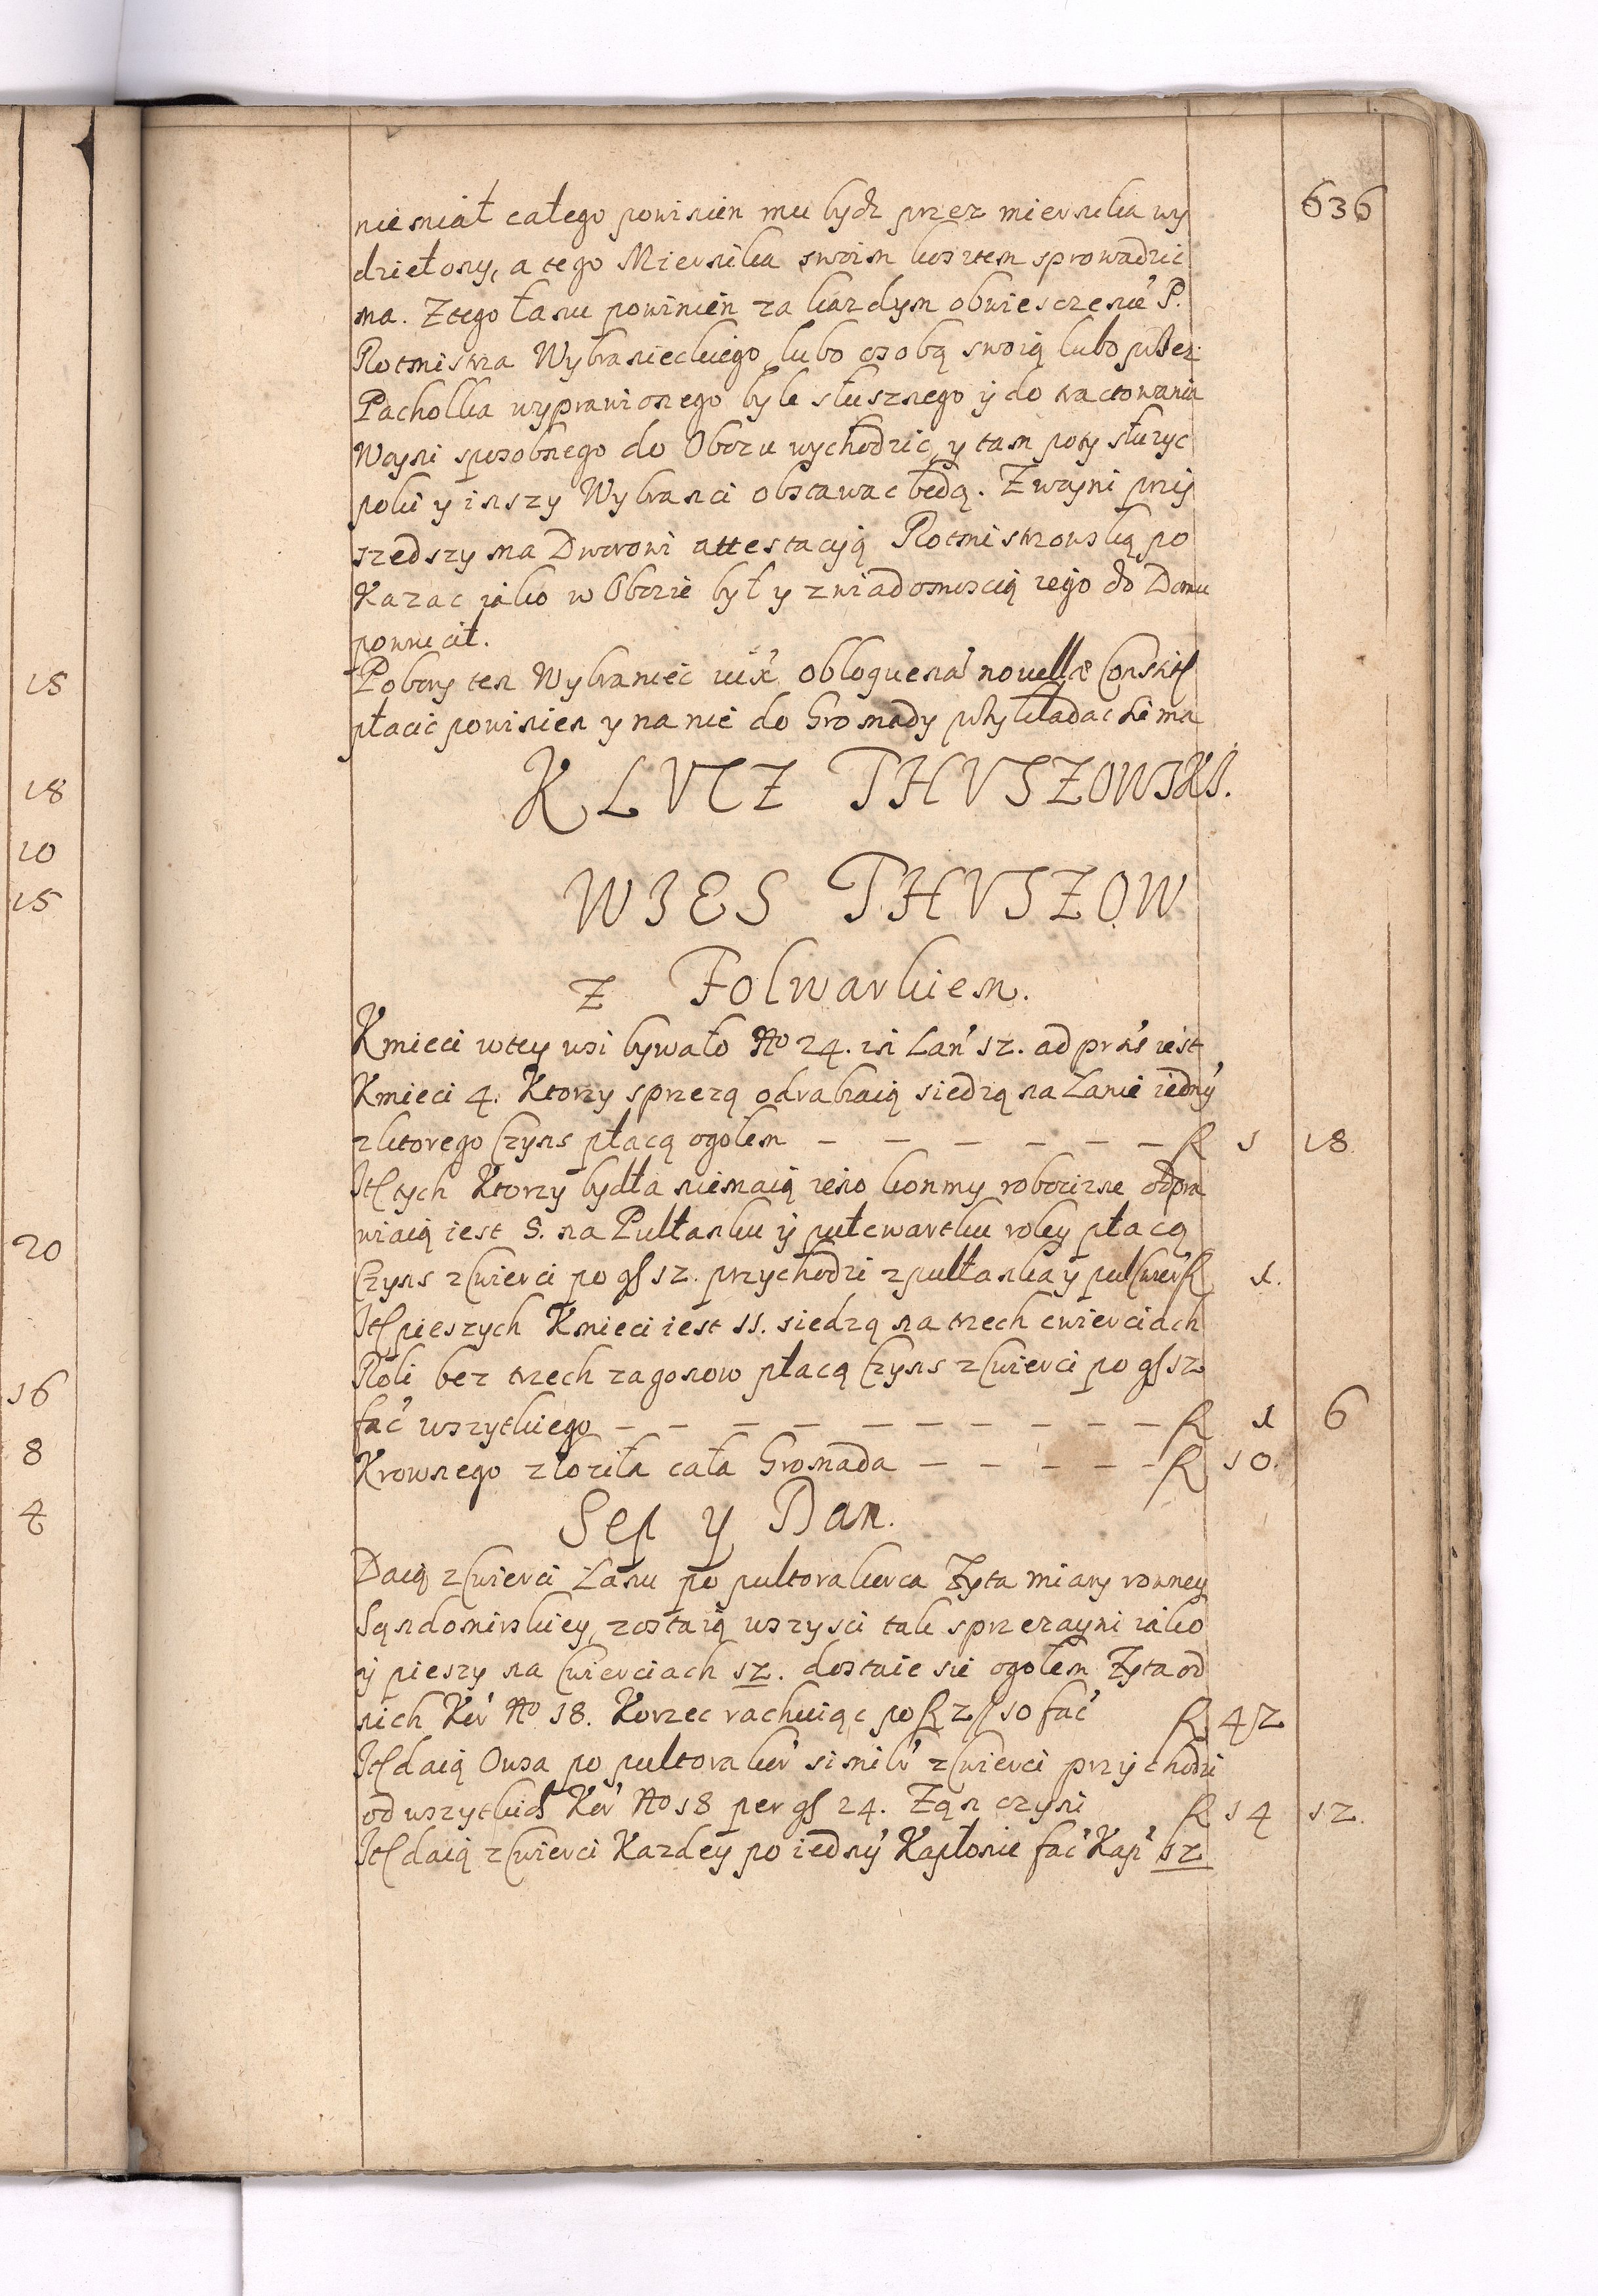 636
nie miał całego powinien mu bydz przez miernika wy
dzielony, a tego Miernika swoim kosztem sprowadzic
ma. Z tego łanu powinien za kazdym obwiesczenie P.
Rotmistrza Wybranieckiego lubo osobą swoią lubo przez
Pachołka wyprawionego byle słusznego ÿ do tractowania
Woyni sposobnego do Obozu wychodzic, y tam poty słuzyc
poki y inszy Wybranci obstawac będą. Z woyni przy
szedszy ma Dworowi attestacyią Rotmistrzowską po
Kazac iako w Obozie był y z wiadomoscią iego do Domu
powrucił.
Pobory ten Wybraniec iux obloquena novellæ Constit
płacic powinien y na nie do Gromady przykładac sie ma
KLVCZ THVSZOWSKI.
WIES THVSZOW
Z Folwarkiem.
Kmieci w tey wsi bywało No 24. in Lan 12. ad prns iest
Kmieci 4. Ktorzy sprzezą odrabiaią siedzą na Lanie iedny
z ktorego Czyns płacą ogołem – – – – – – – R 1 18
Itl tych Ktorzy bydła niemaią ieno konmy robocizne odpra
wiaią iest 5. na Pułłanku ÿ pułcwartku roley płacą
Czyns z Cwierci po gl 12. przychodzi z pułłanka y pulCwier R 1.
Itl pieszych Kmieci iest 11. siedzą na trzech cwierciach
Roli bez trzech zagonow płacą Czyns z Cwierci po gl 12
fac wszytkiego – – – – – – – – – – R 1 6
Krownego złoziła cała Gromada – – – – – R 10.
Sep y Dan.
Daią z Cwierci Lanu po pultora korca Zyta miary rowney
Sąndomirskiey, zostaią wszysci tak sprzezayni iako
ÿ pieszy na Cwierciach 12. dostaie sie ogołem Zyta od
nich Kor No 18. Korzec rachuiąc po R 2/10 fac R 42
Itl daią Owsa po pultora kor simili z Cwierci przychodzi
od wszytkich Kor No 18 per gl 24. Ząn czyni R 14 12.
Itl daią z Cwierci Kazdeÿ po iedny Kapłonie fac Kap 12
15
18
10
15
20
16
8
4